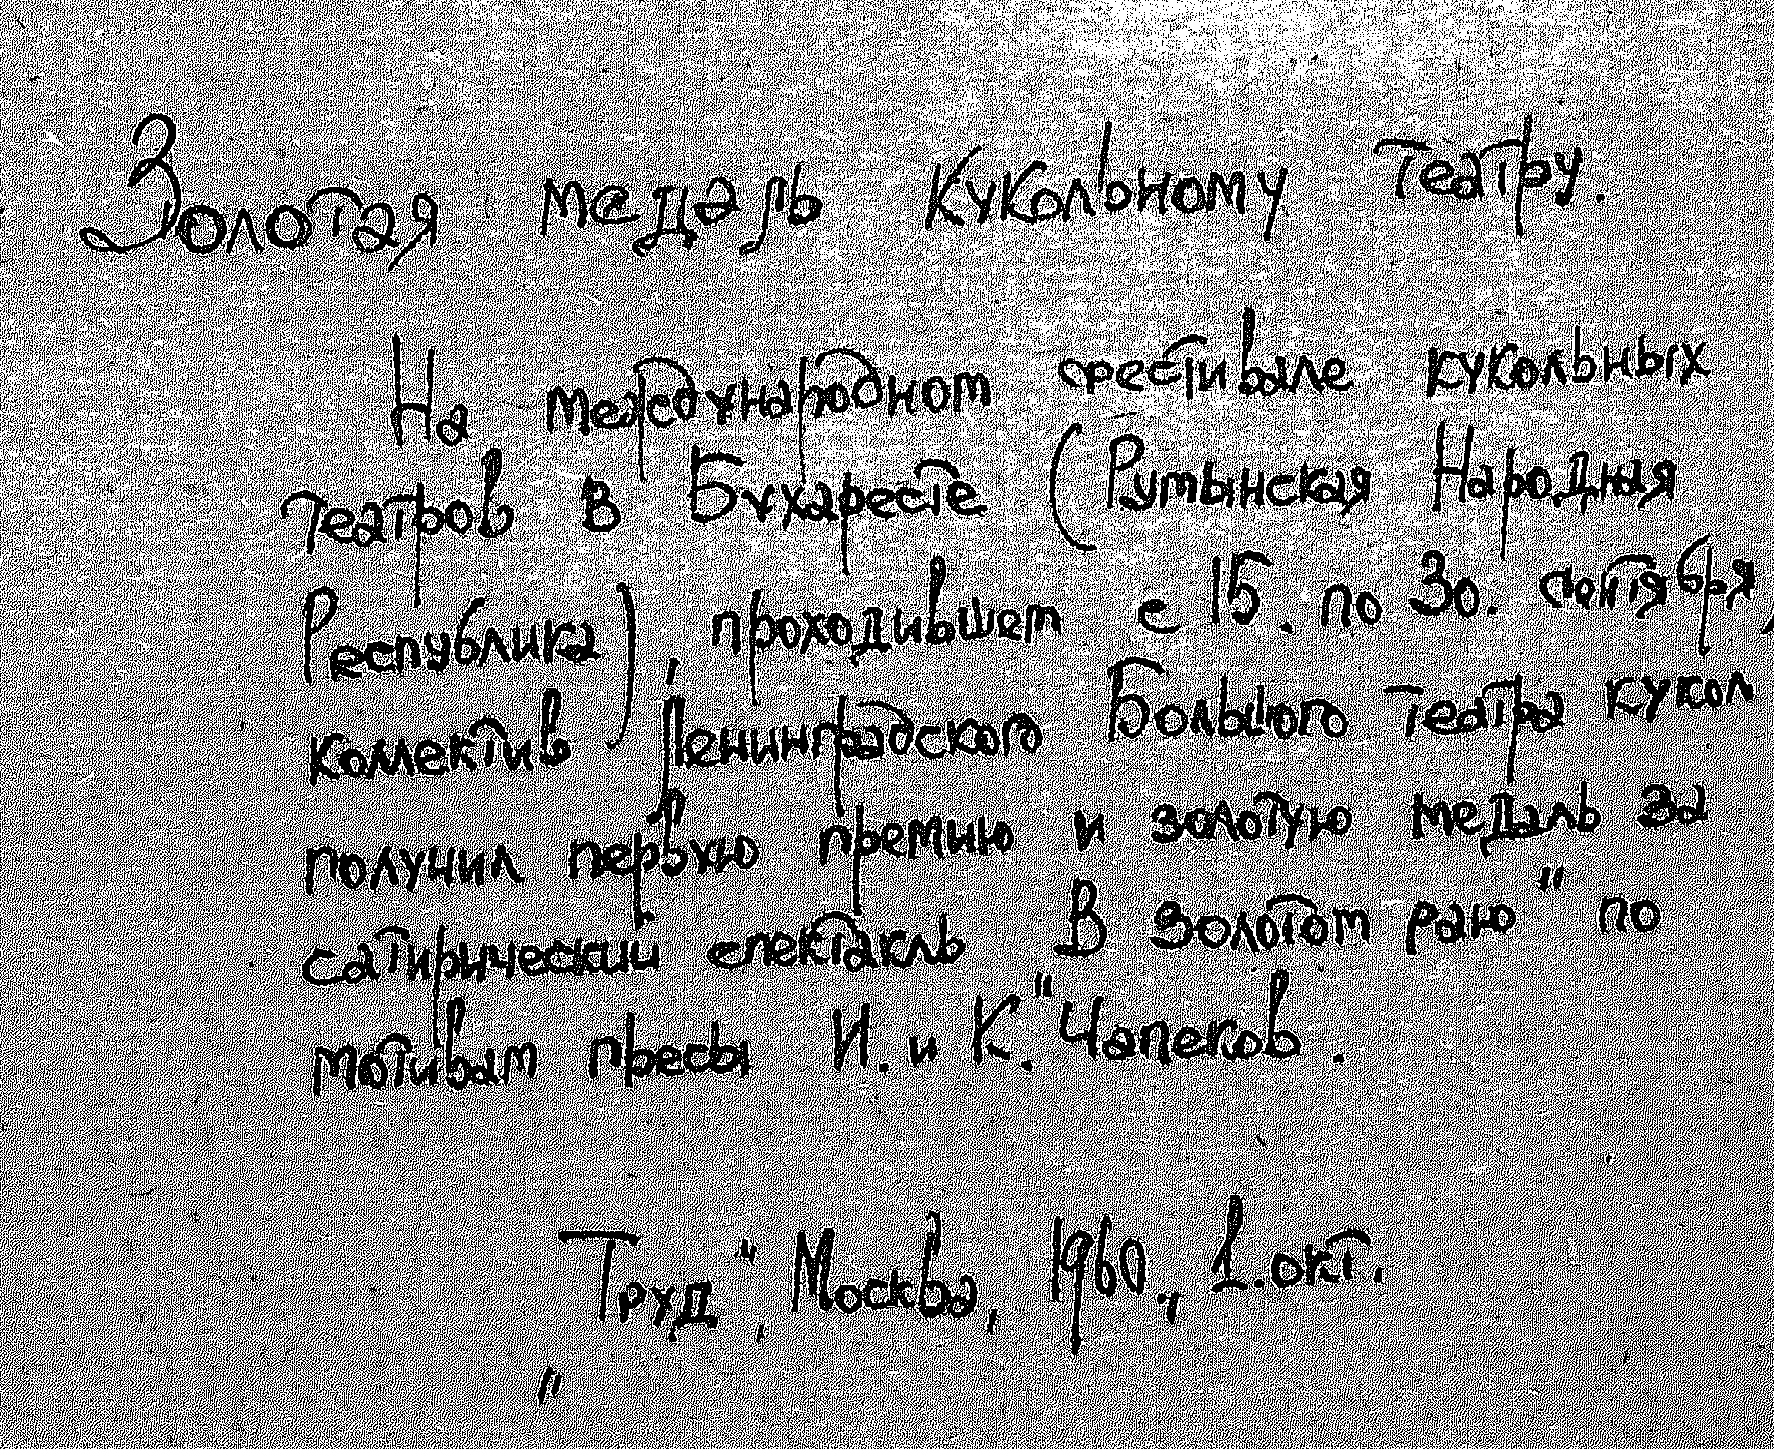 Золотая медаль кукольному театру.
На международном фестивале кукольных
театров в Бухаресте (Румынская Народная
Республика), проходившем с 15. по 30. сентября,
коллектив Ленинградского Большого театра кукол
получил первую премию и золотую медаль за
сатирический спектакль „В золотом раю" по
мотивам пьесы И. и К. Чапеков.
„Труд", Москва, 1960., 1. окт.